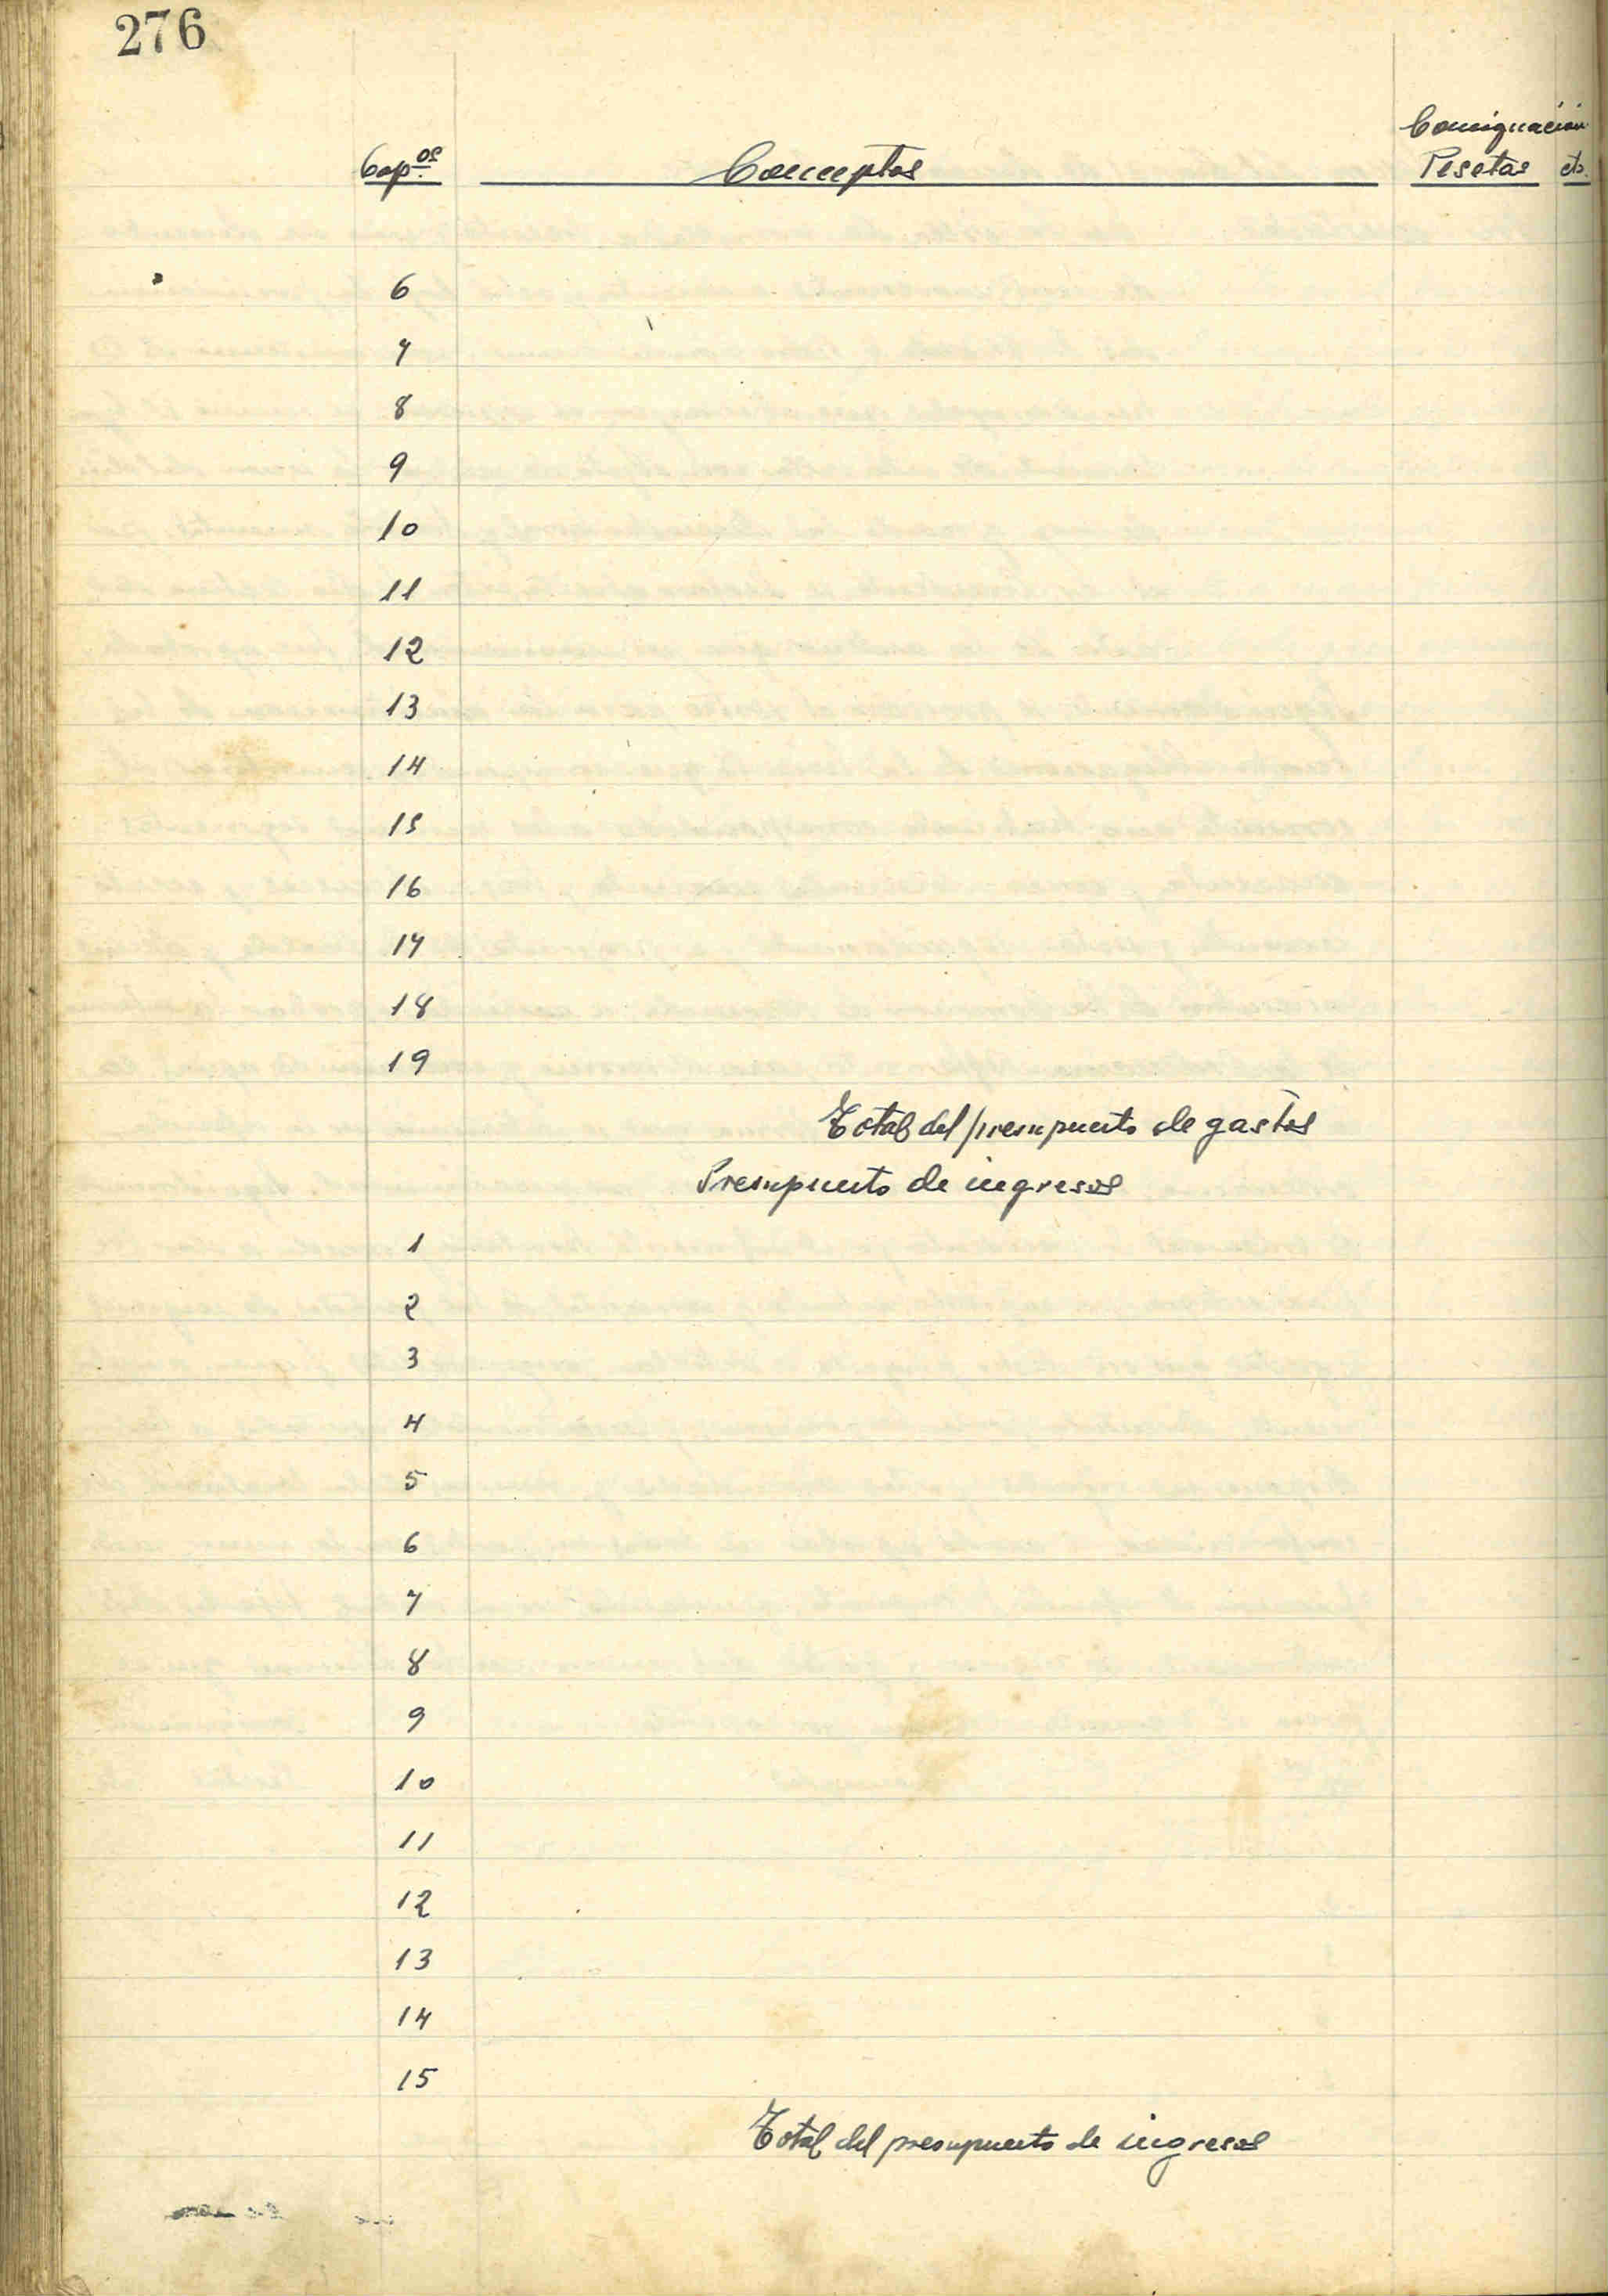 276
Consignación
Cap.os Conceptos Pesetas cts.
6
7
8
9
10
11
12
13
14
15
16
17
18
19
Total del presupuesto de gastos
Presupuesto de ingresos
1
2
3
4
5
6
7
8
9
10
11
12
13
14
15
Total del presupuesto de ingresos